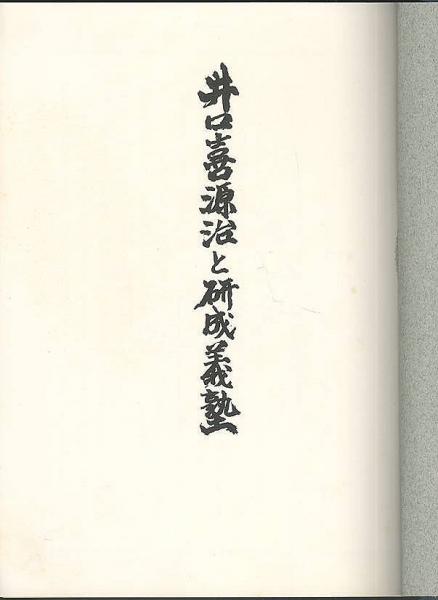 井口喜源治と研成義塾